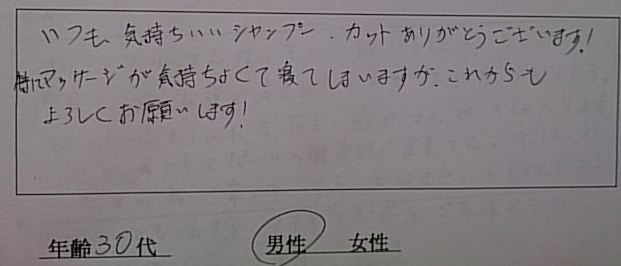 いつも、気持ちいいシャンプー、カットありがとうございます!
特にマッサージが気持ちよくて寝てしまいますが、これからも
よろしくお願いします!
年齢30代 男性 女性